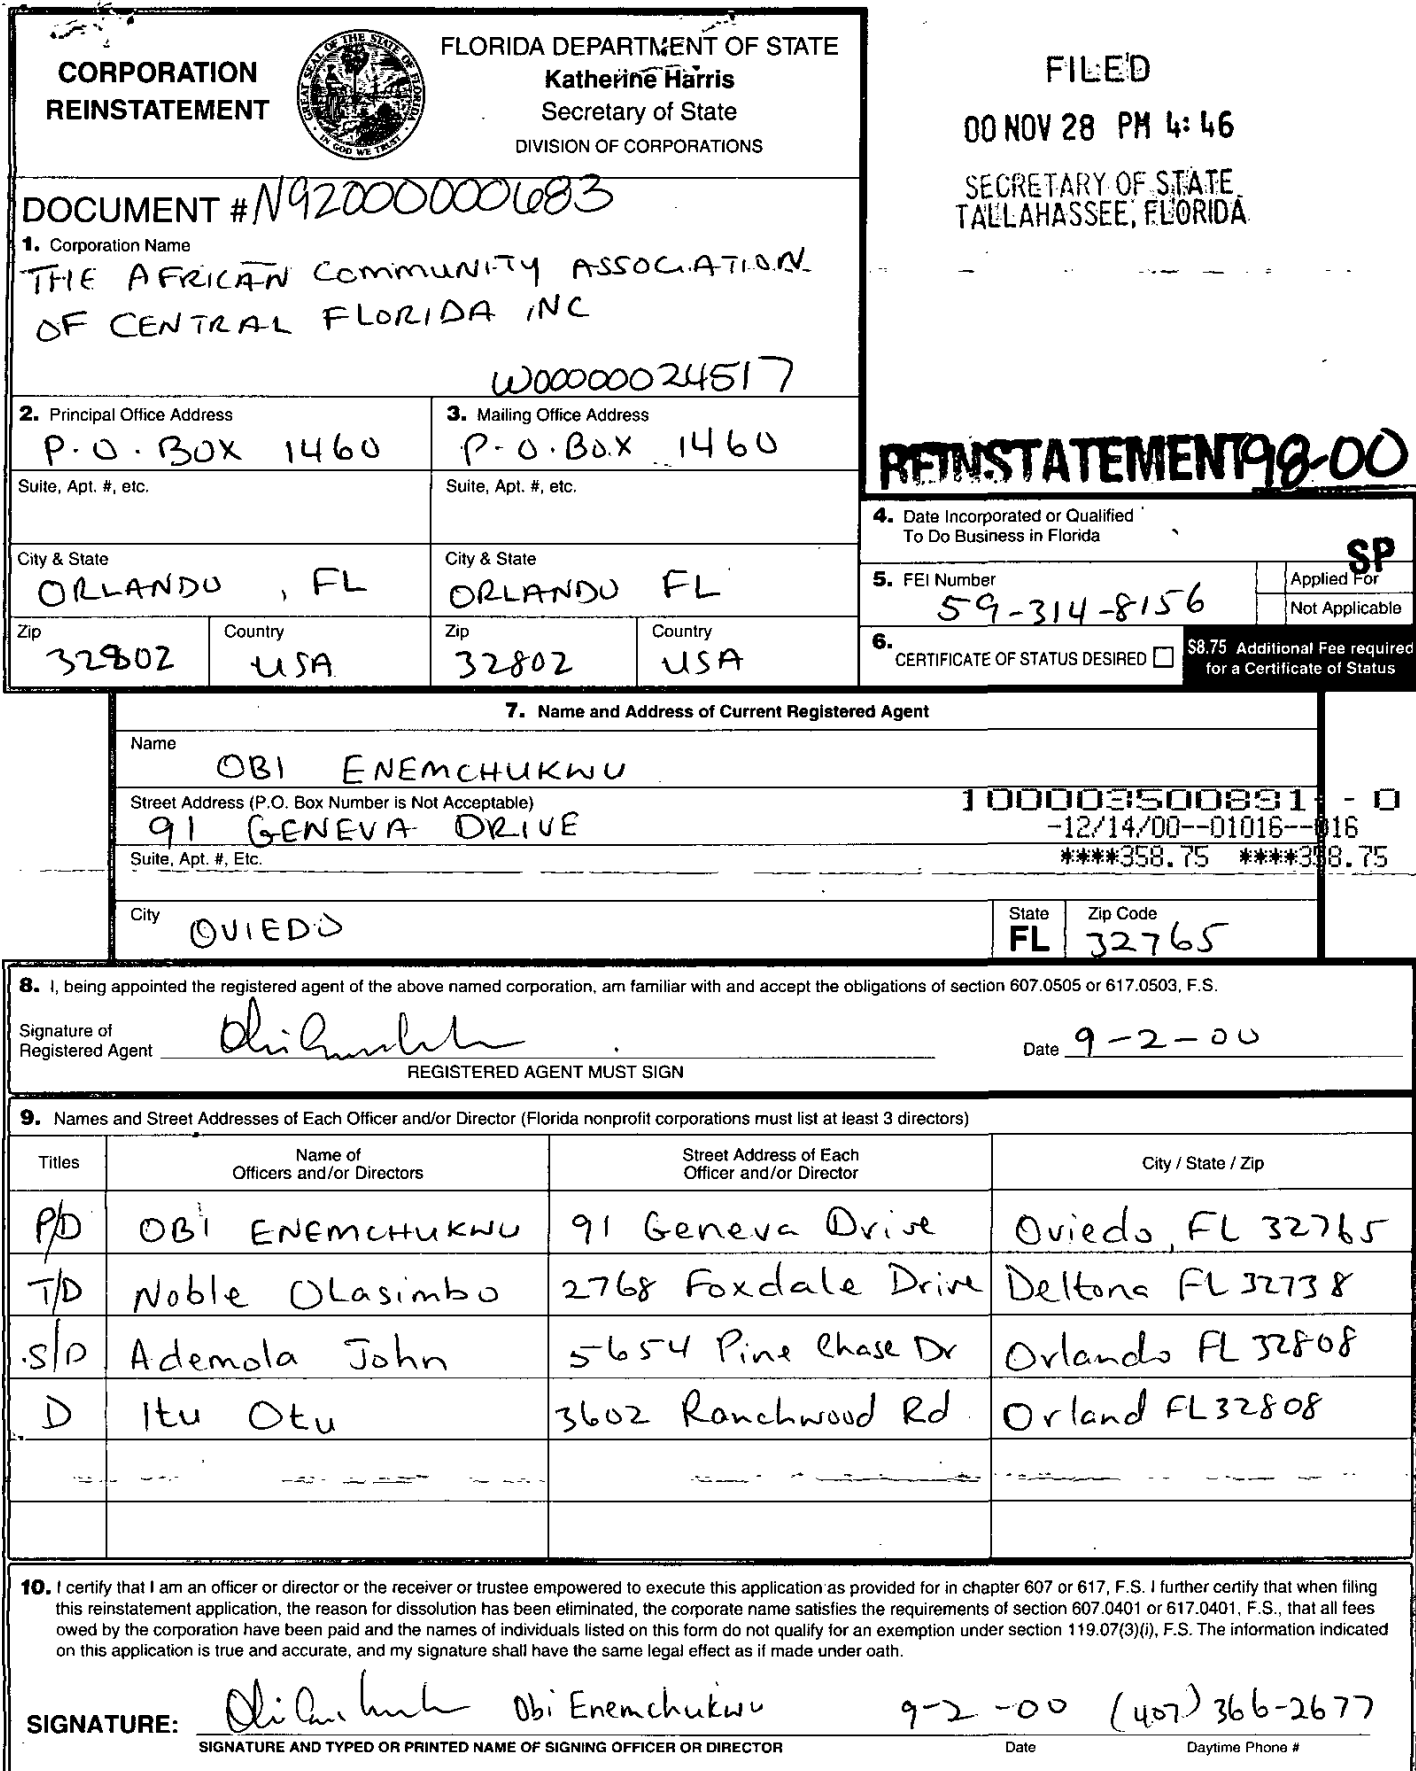 CORPORATION
REINSTATEMENT
GREAT SEAL OF THE STATE OF FLORIDA
IN GOD WE TRUST
FLORIDA DEPARTMENT OF STATE
Katherine Harris
Secretary of State
DIVISION OF CORPORATIONS
FILED
00 NOV 28 PM 4:46
SECRETARY OF STATE
TALLAHASSEE, FLORIDA
DOCUMENT # N92000000683
1. Corporation Name
THE AFRICAN COMMUNITY ASSOCIATION
OF CENTRAL FLORIDA INC
W00000024517
2. Principal Office Address
P.O. BOX 1460
3. Mailing Office Address
P.O. BOX 1460
REINSTATEMENT 98-00
Suite, Apt. #, etc.
Suite, Apt. #, etc.
4. Date Incorporated or Qualified
To Do Business in Florida
SP
City & State
ORLANDO, FL
City & State
ORLANDO FL
5. FEI Number
59-314-8156
Applied For
Not Applicable
Zip
32802
Country
USA
Zip
32802
Country
USA
6. CERTIFICATE OF STATUS DESIRED
$8.75 Additional Fee required
for a Certificate of Status
7. Name and Address of Current Registered Agent
Name
OBI ENEMCHUKWU
Street Address (P.O. Box Number is Not Acceptable)
91 GENEVA DRIVE
100003500831--0
-12/14/00--01016--016
****358.75 ****358.75
Suite, Apt. #, Etc.
City
OVIEDO
State
FL
Zip Code
32765
8. I, being appointed the registered agent of the above named corporation, am familiar with and accept the obligations of section 607.0505 or 617.0503, F.S.
Signature of
Registered Agent
Date 9-2-00
REGISTERED AGENT MUST SIGN
9. Names and Street Addresses of Each Officer and/or Director (Florida nonprofit corporations must list at least 3 directors)
Titles
Name of
Officers and/or Directors
Street Address of Each
Officer and/or Director
City / State / Zip
P/D OBI ENEMCHUKWU 91 Geneva Drive Oviedo, FL 32765
T/D Noble Olasimbo 2768 Foxdale Drive Deltona FL 32738
S/D Ademola John 5654 Pine Chase Dr Orlando FL 32808
D Itu Otu 3602 Ranchwood Rd Orland FL 32808
10. I certify that I am an officer or director or the receiver or trustee empowered to execute this application as provided for in chapter 607 or 617, F.S. I further certify that when filing
this reinstatement application, the reason for dissolution has been eliminated, the corporate name satisfies the requirements of section 607.0401 or 617.0401, F.S., that all fees
owed by the corporation have been paid and the names of individuals listed on this form do not qualify for an exemption under section 119.07(3)(i), F.S. The information indicated
on this application is true and accurate, and my signature shall have the same legal effect as if made under oath.
SIGNATURE: Obi Enemchukwu 9-2-00 (407) 366-2677
SIGNATURE AND TYPED OR PRINTED NAME OF SIGNING OFFICER OR DIRECTOR
Date
Daytime Phone #